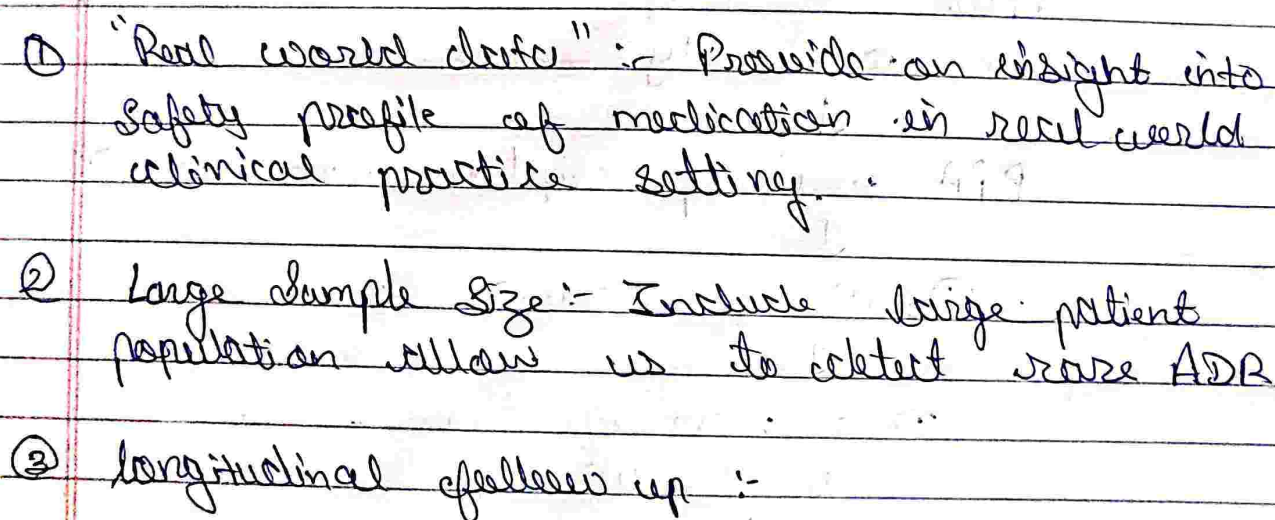 ① "Real world data" :- Provide an insight into
safety profile of medication in real world
clinical practice setting.
② Large Sample Size :- Include large patient
population allow us to detect rare ADR
③ longitudinal follow up :-